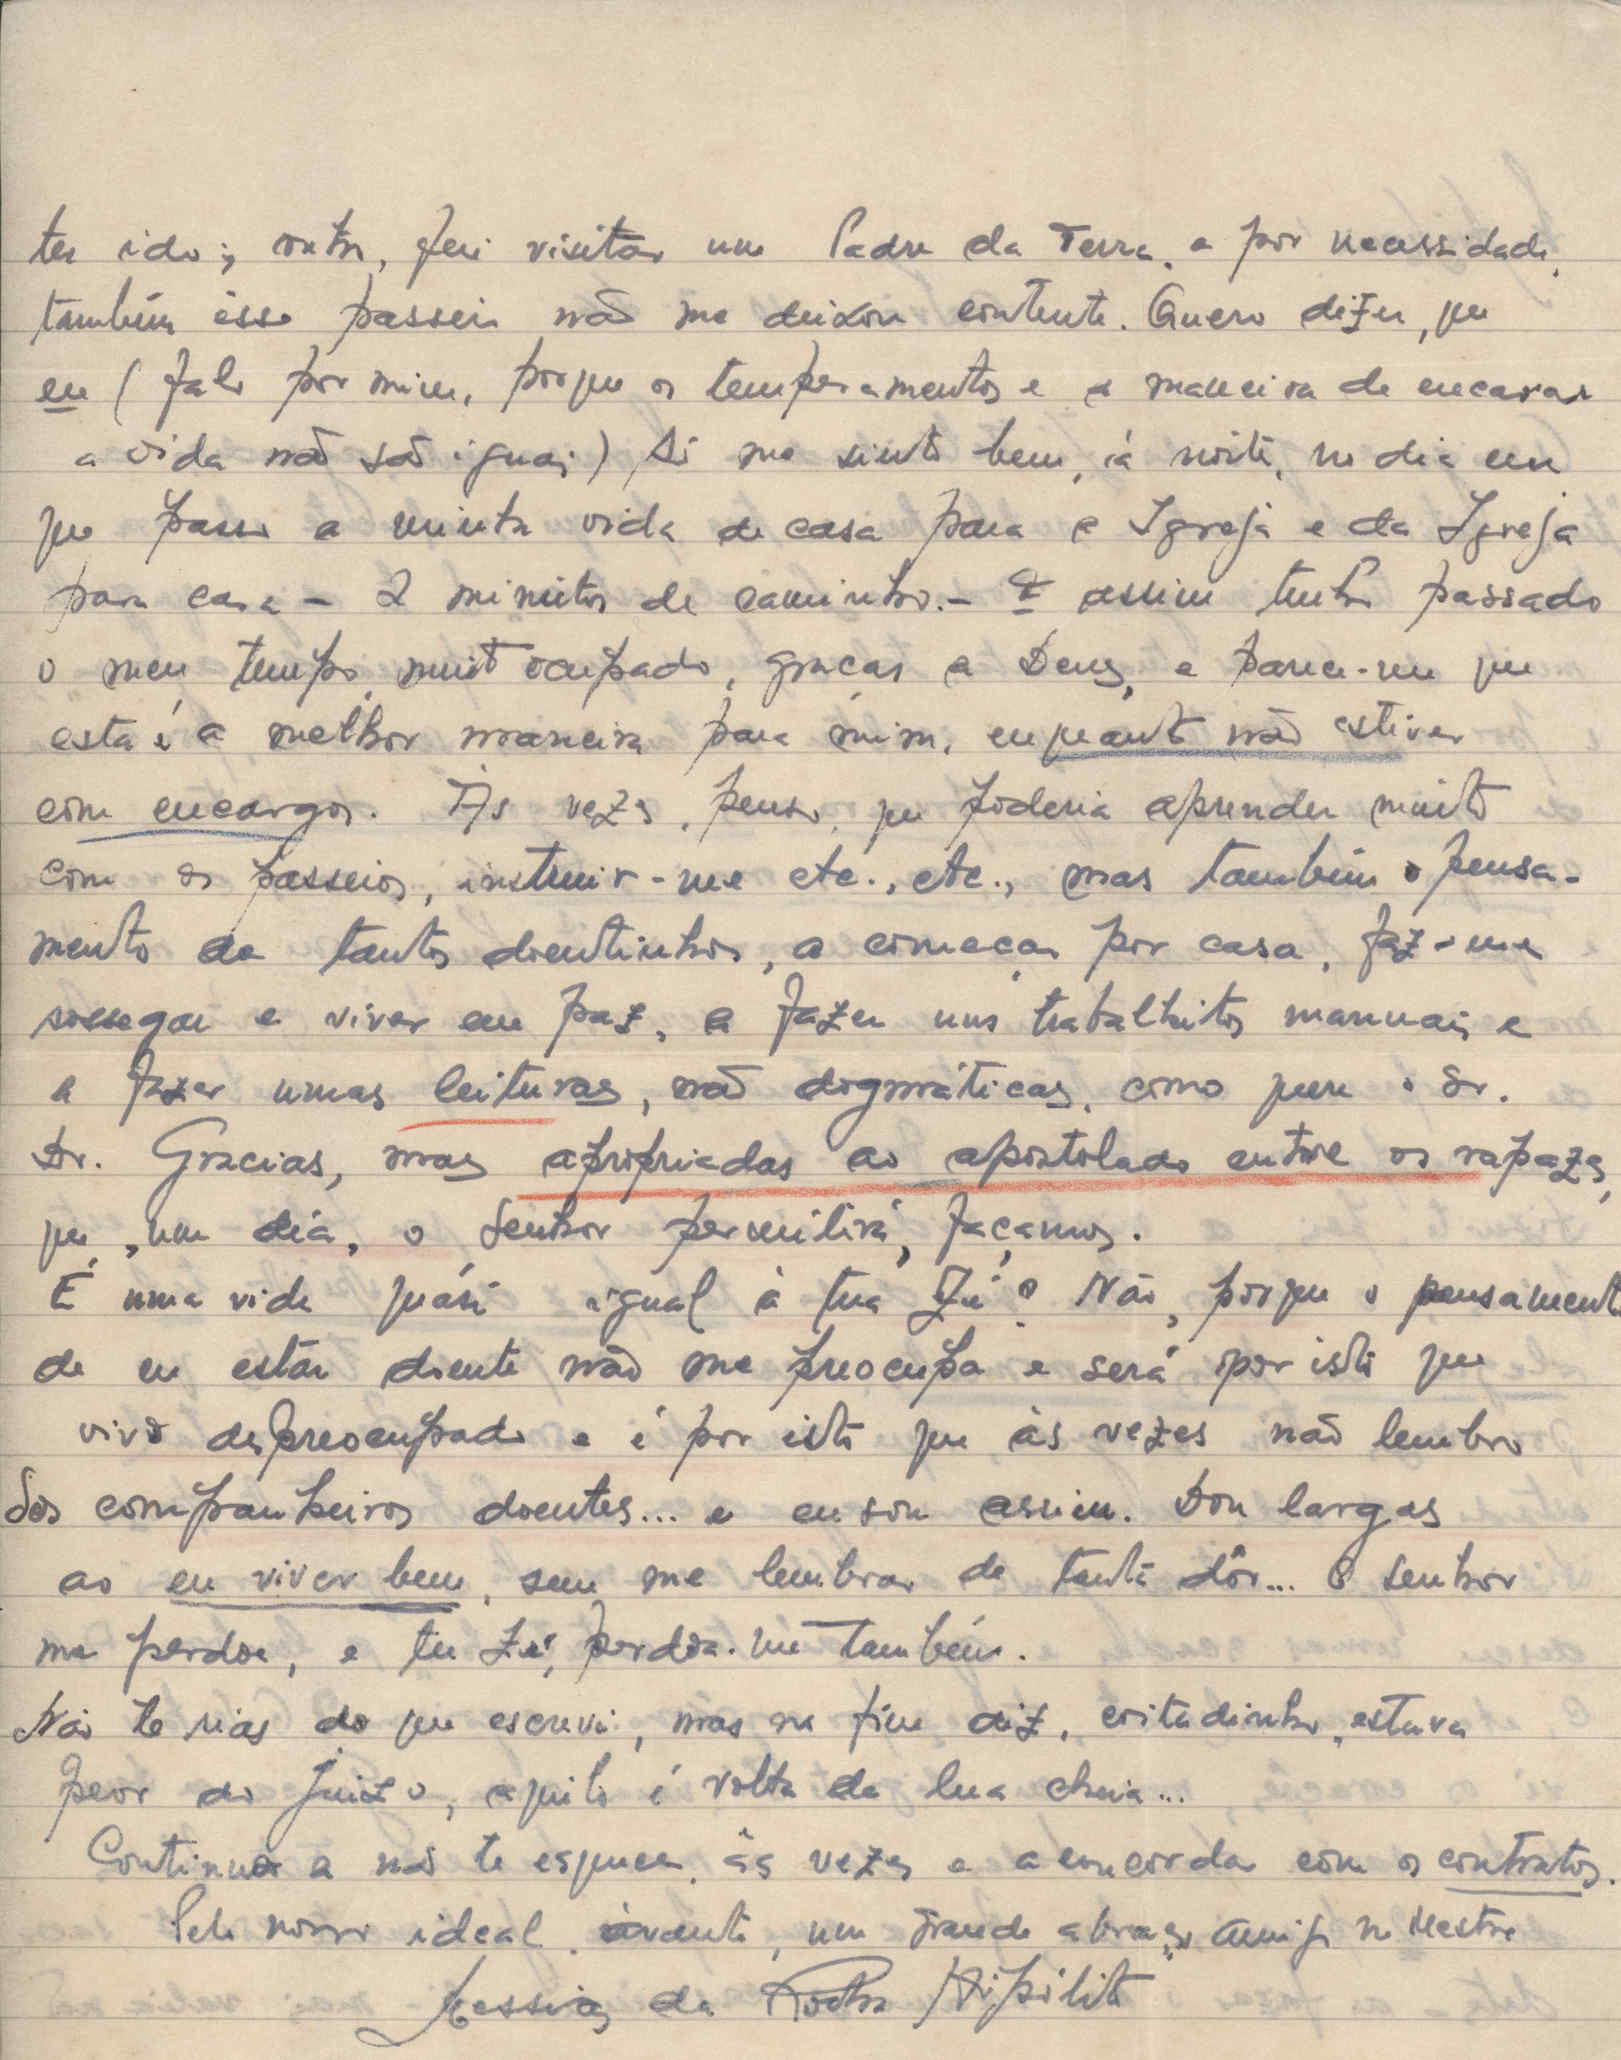 ter ido; outra, fui visitar um Padre da Terra, e por necessidade,
também êsse passeio não me deixou contente. Quero dizer, que
eu (falo por mim, porque os temperamentos e a maneira de encarar
a vida não são iguais) só me sinto bem, à noite, no dia em
que passo a minha vida de casa para a Igreja e da Igreja
para casa – 2 minutos de caminho. – E assim tenho passado
o meu tempo, muito ocupado, graças a Deus, e parece-me que
esta é a melhor maneira para mim, enquanto não estiver
com encargos. Às vezes, penso, que poderia aprender muito
com os passeios, instruir-me etc., etc., mas também o pensa-
mento de tantos doentinhos, a começar por casa, faz-me
sossegar e viver em paz, a fazer uns trabalhitos manuais e
a fazer umas leituras, não dogmáticas, como quere o Sr.
Dr. Gracias, mas apropriadas ao apostolado entre os rapazes,
que, um dia, o Senhor permitirá, façamos.
É uma vida quási igual à tua Zé? Não, porque o pensamento
de eu estar doente não me preocupa e será por isto que
vivo despreocupado e é por isto que às vezes não lembro
dos companheiros doentes... e eu sou assim. Dou largas
ao eu viver bem, sem me lembrar de tanta dôr... O Senhor
me perdoe, e tu Zé, perdoa-me também.
Não te rias do que escrevi, mas no fim diz, coitadinho, estava
peor do juizo, aquilo é volta da lua cheia...
Continua a não te esquecer, às vezes e a concordar com os contratos.
Pelo nosso ideal, ávante, um grande abraço, amigo no Mestre
Messias da Rocha Hipólito